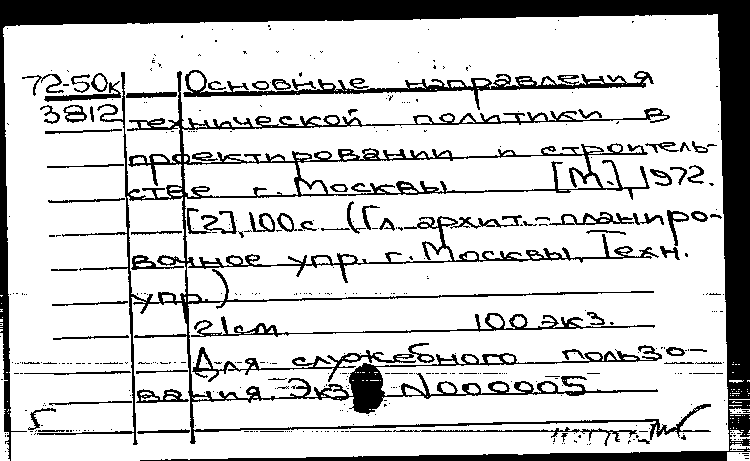 72-50к Основные направления
3812 технической политики в
проектировании и строитель-
стве г. Москвы. [М.], 1972.
[2], 100 с. (Гл. архит.-планиро-
вочное упр. г. Москвы, Техн.
упр.)
21 см. 100 экз.
Для служебного пользо-
вания. Экз. N000005
Г